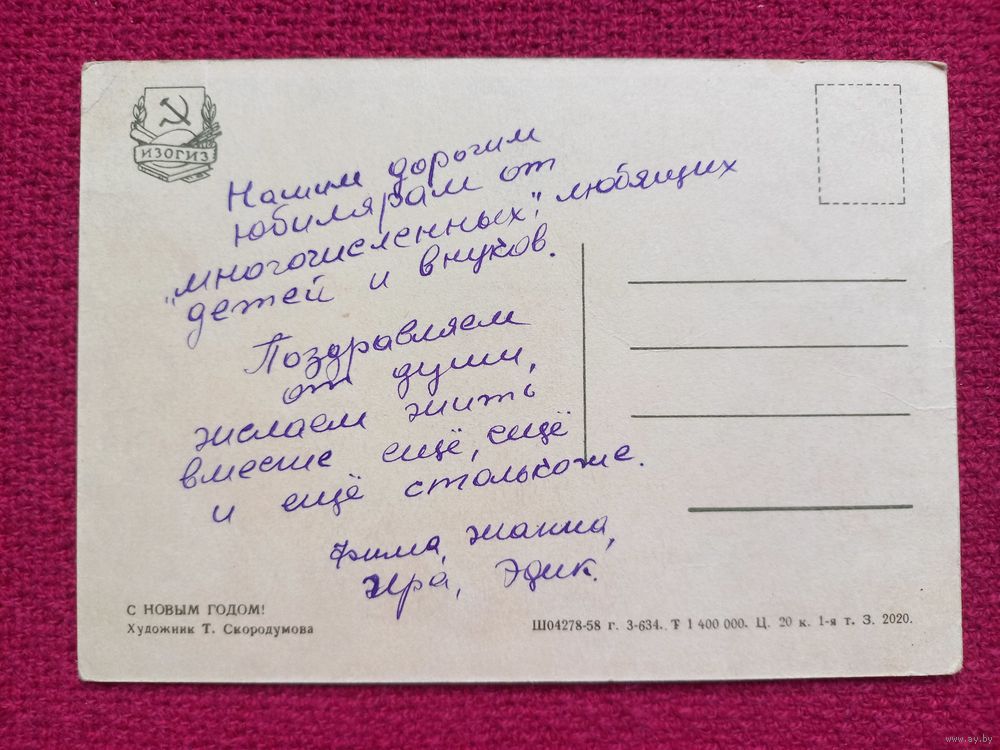 ИЗОГИЗ
Нашим дорогим
юбилярам от
"многочисленных", любящих
детей и внуков.
Поздравляем
от души,
желаем жить
вместе ещё, ещё
и ещё столькоже.
Фима, Жанна,
Ира, Эдик.
С НОВЫМ ГОДОМ!
Художник Т. Скородумова
Ш04278-58 г. З-634. Т 1 400 000. Ц. 20 к. 1-я т. З. 2020.
www.ay.by